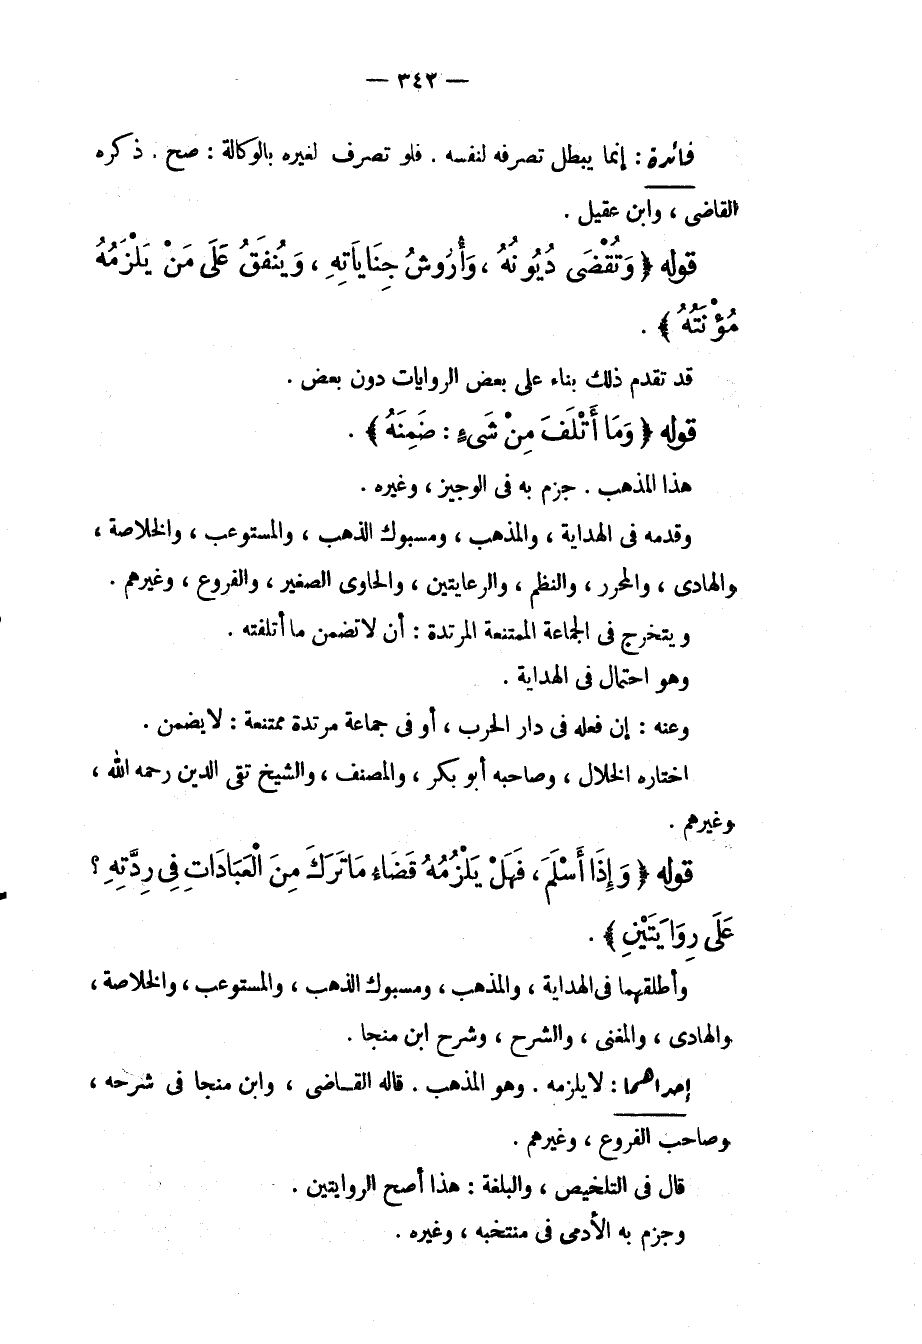 — ٣٤٣ —
فائدة : إنما يبطل تصرفه لنفسه . فلو تصرف لغيره بالوكالة : صح . ذكره
القاضى ، وابن عقيل .
قوله ﴿ وَتُقْضَى دُيُونُهُ ، وَأُرُوشُ جِنَايَاتِهِ ، وَيُنْفَقُ عَلَى مَنْ يَلْزَمُهُ
مُؤْنَتُهُ ﴾ .
قد تقدم ذلك بناء على بعض الروايات دون بعض .
قوله ﴿ وَمَا أَتْلَفَ مِنْ شَىءٍ : ضَمِنَهُ ﴾ .
هذا المذهب . جزم به فى الوجيز ، وغيره .
وقدمه فى الهداية ، والمذهب ، ومسبوك الذهب ، والمستوعب ، والخلاصة ،
والهادى ، والمحرر ، والنظم ، والرعايتين ، والحاوى الصغير ، والفروع ، وغيرهم .
ويتخرج فى الجماعة الممتنعة المرتدة : أن لا تضمن ما أتلفته .
وهو احتمال فى الهداية .
وعنه : إن فعله فى دار الحرب ، أو فى جماعة مرتدة ممتنعة : لا يضمن .
اختاره الخلال ، وصاحبه أبو بكر ، والمصنف ، والشيخ تقى الدين رحمه الله ،
وغيرهم .
قوله ﴿ وَإِذَا أَسْلَمَ ، فَهَلْ يَلْزُمُهُ قَضَاءِ مَا تَرَكَ مِنَ الْعَبَادَاتِ فِى رِدَّتِهِ ؟
عَلَى رِوَايَتَيْنِ ﴾ .
وأطلقهما فى الهداية ، والمذهب ، ومسبوك الذهب ، والمستوعب ، والخلاصة ،
والهادى ، والمغنى ، والشرح ، وشرح ابن منجا .
إحداهما : لا يلزمه . وهو المذهب . قاله القاضى ، وابن منجا فى شرحه ،
وصاحب الفروع ، وغيرهم .
قال فى التلخيص ، والبلغة : هذا أصح الروايتين .
وجزم به الأدمى فى منتخبه ، وغيره .